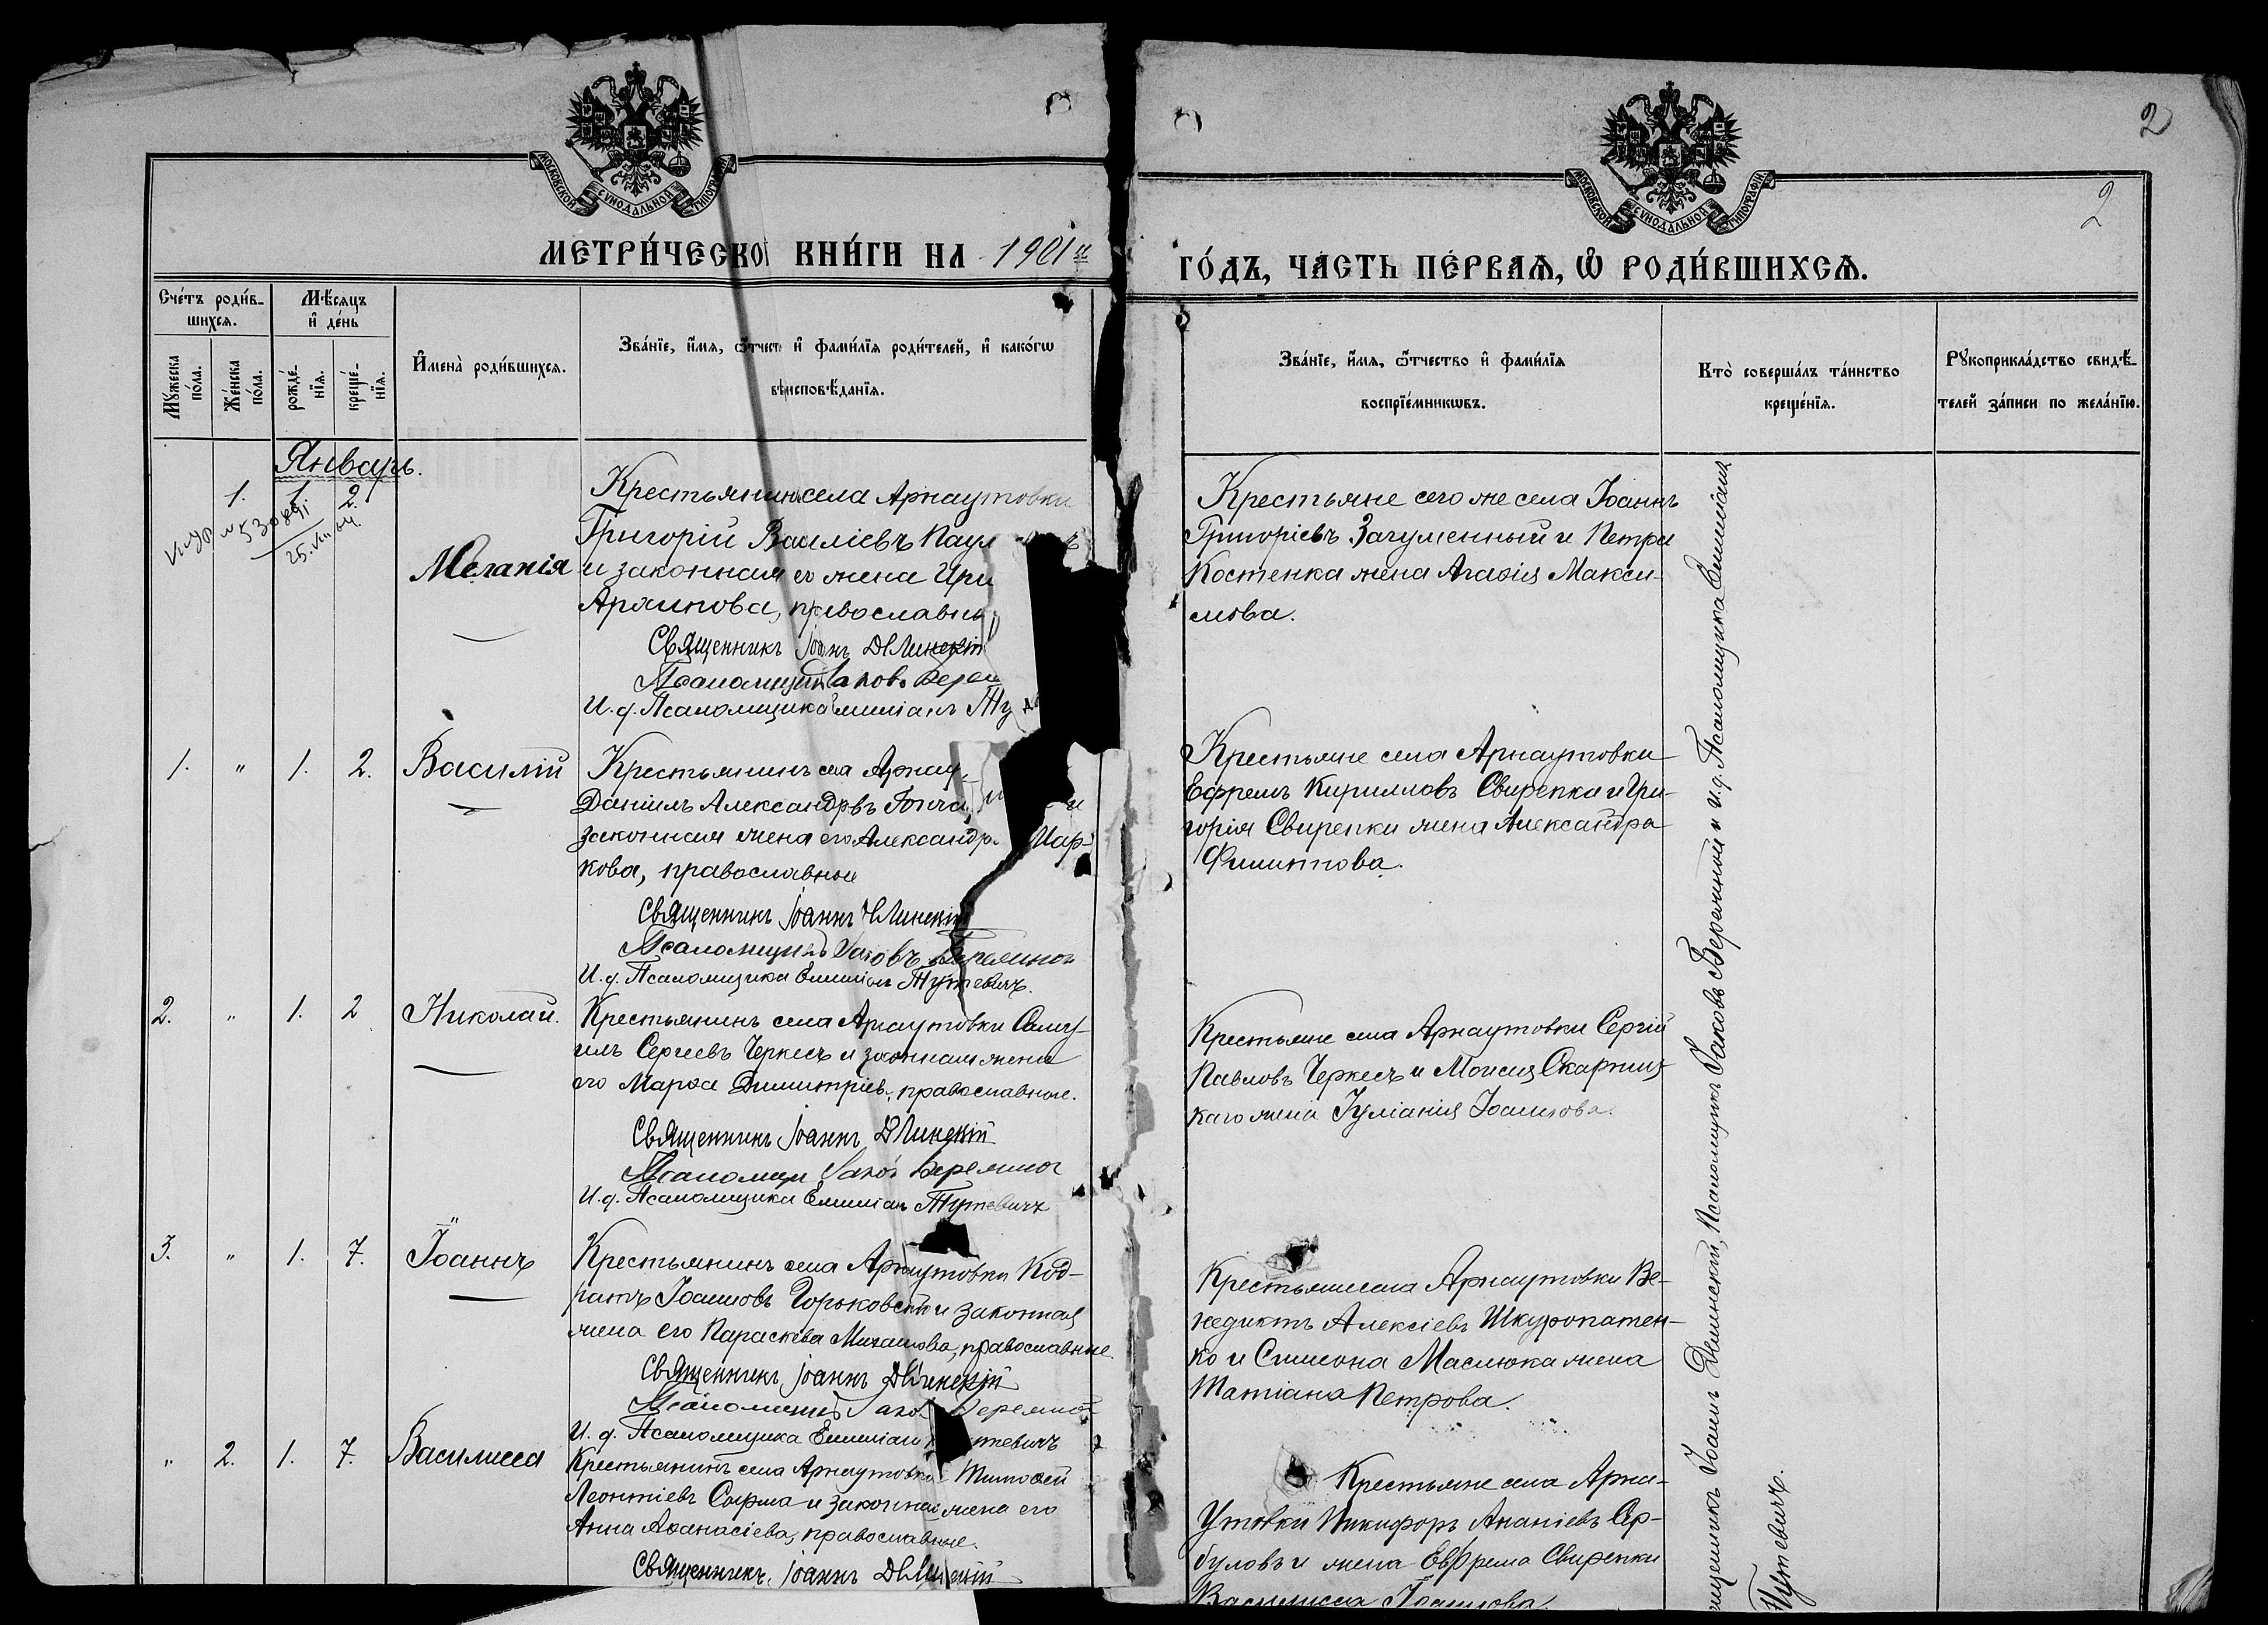 2
2
МОСКОВСКОЙ СѴНОДАЛЬНОЙ ТИПОГРАФІИ
МОСКОВСКОЙ СѴНОДАЛЬНОЙ ТИПОГРАФІИ
МЕТРИ́ЧЕСКО КНИ́ГИ НА 1901й
ГО́ДЪ, ЧАСТЬ ПЕ́РВАѦ, Ѡ҆ РОДИ́ВШИХСѦ.
Сче́тъ роди́в-
шихсѧ.
Мꙋ́жеска по́ла.
Же́нска по́ла.
Мѣ́сяцъ
и҆ де́нь
рожде́-
нїѧ.
креще́-
нїѧ.
И҆мена̀ роди́вшихсѧ.
Зва́нїе, и҆́мѧ, ѻ҆́тчест и҆ фами́лїѧ роди́телей, и҆ како́гѡ
вѣроисповѣ́данїѧ.
Зва́нїе, и҆́мѧ, ѻ҆́тчество и҆ фами́лїѧ
воспрїе́мникѡвъ.
Кто̀ соверша́лъ та́инство
креще́нїѧ.
Рꙋкоприкла́дство свидѣ́-
телей за́писи по жела́нїю.
Январь.
1. 1. 2.
Меланія
Крестьянинъ села Арнаутовки
Григорій Василіевъ Паул
и законная его жена Ири
Архипова, православны
Священникъ Іоаннъ Двинскій
Псаломщикъ Іаковъ Верем
И. д. Псаломщика Емиліанъ
Крестьяне сего же села Іоаннъ
Григоріевъ Загуменный и Петра
Костенка жена Агафія Макси-
мова.
1. " 1. 2. Василій
Крестьянинъ села Арнау
Даніилъ Александровъ Гонча
законная жена его Александр Мар-
кова, православные
Священникъ Іоаннъ Двинскій
Псаломщикъ Іаковъ
И. д. Псаломщика Емиліанъ Тутевичъ.
Крестьяне села Арнаутовки
Ефремъ Кирилловъ Свирепка и Гри-
горія Свирепки жена Александра
Филиппова.
2. " 1. 2 Николай.
Крестьянинъ села Арнаутовки Саму-
илъ Сергеевъ Черкесъ и законная жена
его Марфа Димитріев, православные.
Священникъ Іоаннъ Двинскій
Псаломщи Іаков
И. д. Псаломщика Емиліан Тутевичъ
Крестьяне села Арнаутовки Сергій
Павловъ Черкесъ и Моисея Скарниц-
каго жена Іуліанія Іоаннова.
3. " 1. 7. Іоаннъ
Крестьянинъ села Арнаутовки Код-
ратъ Іоанновъ Горьковскій и законная
жена его Параскева Михаилова, православные.
Священникъ Іоаннъ Двинскій
Псаломщикъ Іако
И. д. Псаломщика Емиліанъ тевичъ
Крестьяне села Арнаутовки Ве-
недиктъ Алексіевъ Шкуропатен-
ко и Симеона Маслюка жена
Татіана Петрова.
" 2. 1. 7. Василисса
Крестьянинъ села Арнаутовки Тимофей
Леонтіевъ и законная жена его
Анна Афанасіева, православные.
Священникъ Іоаннъ Двинскій
Крестьяне села Арна-
утовки Никифоръ Ананіевъ Сер-
буловъ и жена Ефрема Свирепки
Василисса Іоаннова.
щенникъ Іоаннъ Двинскій, Псаломщикъ Іаковъ и и. д. Псаломщика Емиліанъ
Тутевичъ.